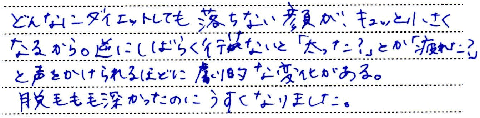 どんなにダイエットしても落ちない顔が、キュッと小さく
なるから。逆にしばらく行けないと「太った?」とか「疲れた?」
と声をかけられるほどに劇的な変化がある。
脱毛も毛深かったのにうすくなりました。